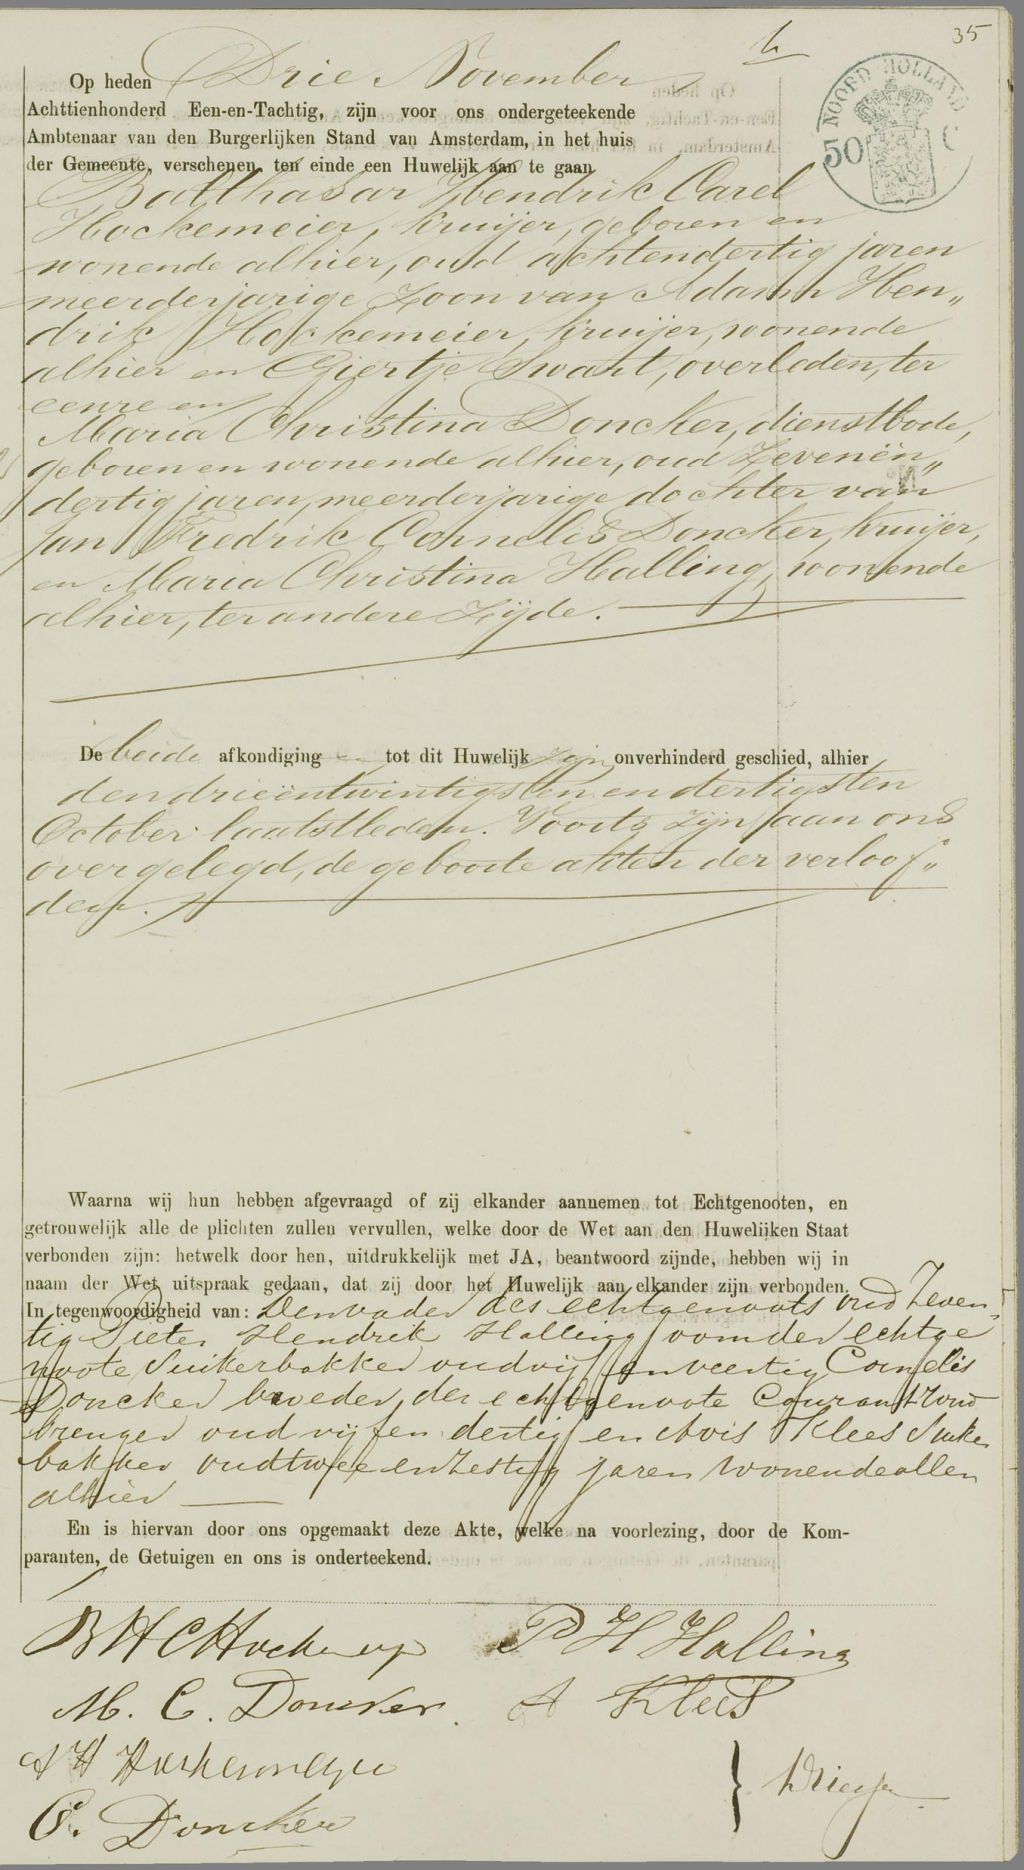 35
NOORD HOLLAND
50 C
Op heden Drie November
Achttienhonderd Een-en-Tachtig, zijn voor ons ondergeteekende
Ambtenaar van den Burgerlijken Stand van Amsterdam, in het huis
der Gemeente, verschenen, ten einde een Huwelijk aan te gaan,
Balthasar Hendrik Carel
Hockemeier, kruijer, geboren en
wonende alhier, oud achtendertig jaren
meerderjarige zoon van Adam Hen„
drik Hockemeier, kruijer, wonende
alhier en Giertje Swart, overleden, ter
eenre en
Maria Christina Doncker, dienstbode,
geboren en wonende alhier, oud Zevenën„
dertig jaren, meerderjarige dochter van
Jan Fredrik Cornelis Doncker, kruijer,
en Maria Christina Halling, wonende
alhier, ter andere zijde.
De beide afkondiging tot dit Huwelijk zijn onverhinderd geschied, alhier
den drieëntwintigsten en dertigsten
October laatstleden. Voorts zijn aan ons
overgelegd, de geboorte akten der verloof„
den.
Waarna wij hun hebben afgevraagd of zij elkander aannemen tot Echtgenooten, en
getrouwelijk alle de plichten zullen vervullen, welke door de Wet aan den Huwelijken Staat
verbonden zijn: hetwelk door hen, uitdrukkelijk met JA, beantwoord zijnde, hebben wij in
naam der Wet uitspraak gedaan, dat zij door het Huwelijk aan elkander zijn verbonden.
In tegenwoordigheid van: Den vader des echtgenoots oud Zeven-
tig Pieter Hendrik Halling oom der echtge
noote Suikerbakker oud vijf en veertig Cornelis
Doncker broeder der echtgenoote Courant rond
brenger oud vijf en dertig en Klees Suiker
bakker oud twee en zestig jaren wonende allen
alhier
En is hiervan door ons opgemaakt deze Akte, welke na voorlezing, door de Kom-
paranten, de Getuigen en ons is onderteekend.
B H C Hockemeyer P H Halling
M. C. Doncker. A Klees
A H Hockemeyer
C. Doncker